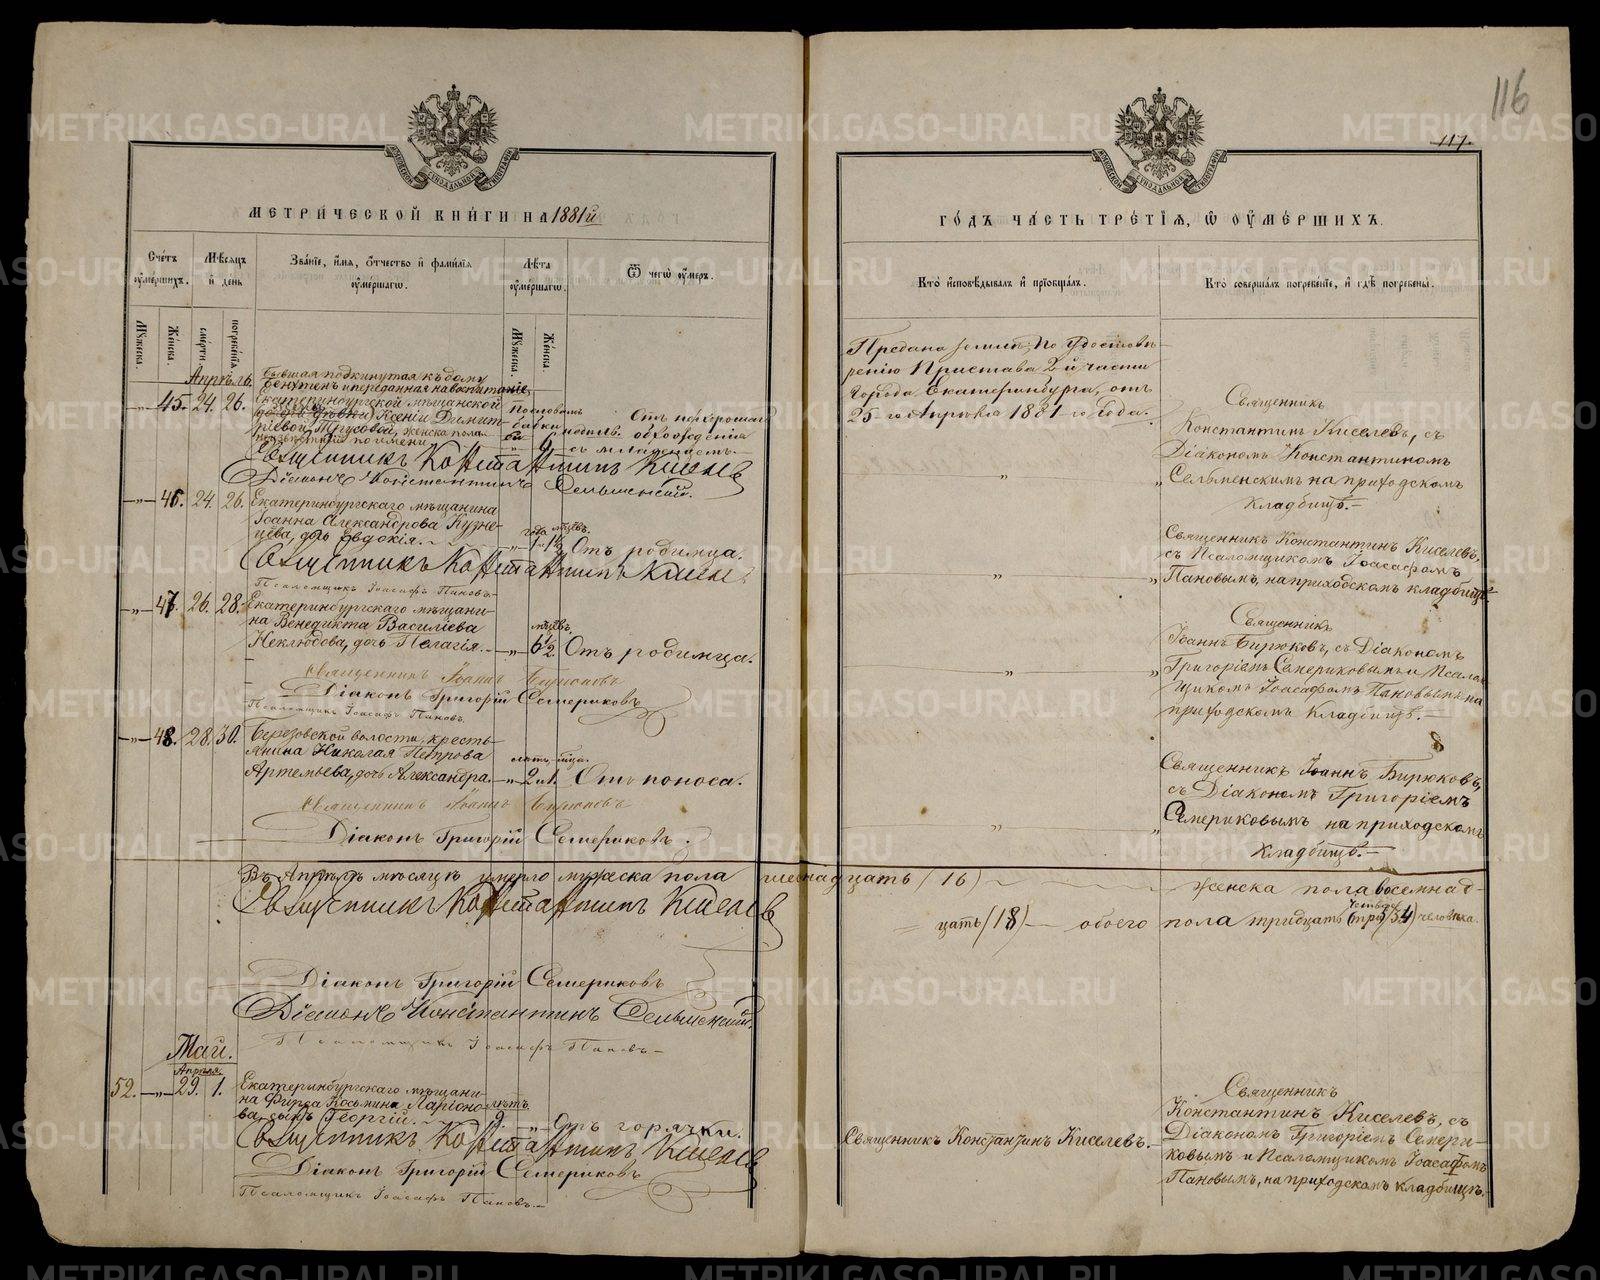 116
117.
МЕТРИЧЕСКОЙ КНИГИ НА 1881й
Счетъ умершихъ.
Мѣсяцъ и день
Званіе, имя, отчество и фамилія умершаго.
Лѣта умершаго.
Отъ чего умеръ.
Мужеска.
Женска.
смерти
погребенія
Мужеска.
Женска
Апрѣль.
бывшая подкинутая къ дому
и переданная на воспитаніе
45. 24. 26. Екатеринбургской мѣщанской
Ксеніи Димит-
ріевой Трусовой, женска пола
неизвѣстная по имени
По словамъ бабки
6 недѣль.
Отъ нехорошаго
обхожденія
съ младенцемъ.
Священникъ Константинъ Киселевъ
Діаконъ Константинъ Сельменскій.
46. 24. 26. Екатеринбургскаго мѣщанина
Іоанна Александрова Кузне-
цова, дочь Евдокія.
года мѣсв.
Отъ родимца.
Священникъ Константинъ Киселевъ
Псаломщикъ Іоасафъ Пановъ
47. 26. 28. Екатеринбургскаго мѣщани-
на Венедикта Василіева
Неклюдова, дочь Пелагія.
мѣсв.
6 1/2. Отъ родимца.
Священникъ Іоаннъ Бирюковъ
Діаконъ Григорій Семериковъ
Псаломщикъ Іоасафъ Пановъ.
48. 28. 30. Березовской волости, кресть-
янина Николая Петрова
Артемьева, дочь Александра.
лѣтъ, мца.
2 и 1. Отъ поноса.
Священникъ Іоаннъ Бирюковъ
Діаконъ Григорій Семериковъ.
Въ Апрѣлѣ мѣсяцѣ умерло мужеска пола шестнадцать (16)
Священникъ Константинъ Киселевъ
Діаконъ Григорій Семериковъ
Діаконъ Константинъ Сельменскій.
Псаломщикъ Іоасафъ Пановъ
Май.
Апрѣля.
52. 29. 1. Екатеринбургскаго мѣщани-
на Фирса Косьмина Ларіоно-
ва, сынъ Георгій.
лѣтъ.
9 Отъ горячки.
Священникъ Константинъ Киселевъ
Діаконъ Григорій Семериковъ
Псаломщикъ Іоасафъ Пановъ.
ГОДЪ ЧАСТЬ ТРЕТІЯ, О УМЕРШИХЪ.
Кто исповѣдывалъ и пріобщалъ.
Кто совершалъ погребеніе, и гдѣ погребены.
Предана землѣ, по удостовѣ-
ренію Пристава 2-й части
города Екатеринбурга, отъ
25-го Апрѣля 1881-го года.
Священникъ
Константинъ Киселевъ, съ
Діакономъ Константиномъ
Сельменскимъ на приходскомъ
кладбищѣ.
Священникъ Константинъ Киселевъ,
съ Псаломщикомъ Іоасафомъ
Пановымъ, на приходскомъ кладбищѣ.
Священникъ
Іоаннъ Бирюковъ, съ Діакономъ
Григоріемъ Семериковымъ и Псалом-
щикомъ Іоасафомъ Пановымъ на
приходскомъ кладбищѣ.
Священникъ Іоаннъ Бирюковъ,
съ Діакономъ Григоріемъ
Семериковымъ на приходскомъ
кладбищѣ.
женска пола восемнад-
цать (18) обоего пола тридцать четыре (34) человѣка.
Священникъ Константинъ Киселевъ.
Священникъ
Константинъ Киселевъ, съ
Діакономъ Григоріемъ Семери-
ковымъ и Псаломщикомъ Іоасафомъ
Пановымъ, на приходскомъ кладбищѣ.
METRIKI.GASO-URAL.RU